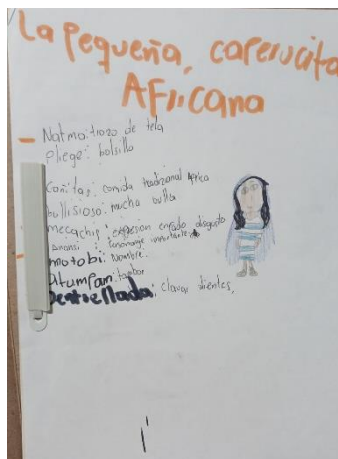 La Pequeña, caperucita
AFricana
Natma: trozo de tela
pliege: bolsillo
Confitas: comida tradizional Africa
bullisioso: mucha bulla
mecachis: expresion enfado disgusto
personaje importante
motobi: Nombre.
Atumpan: tambor
Dentellada: clavar dientes,